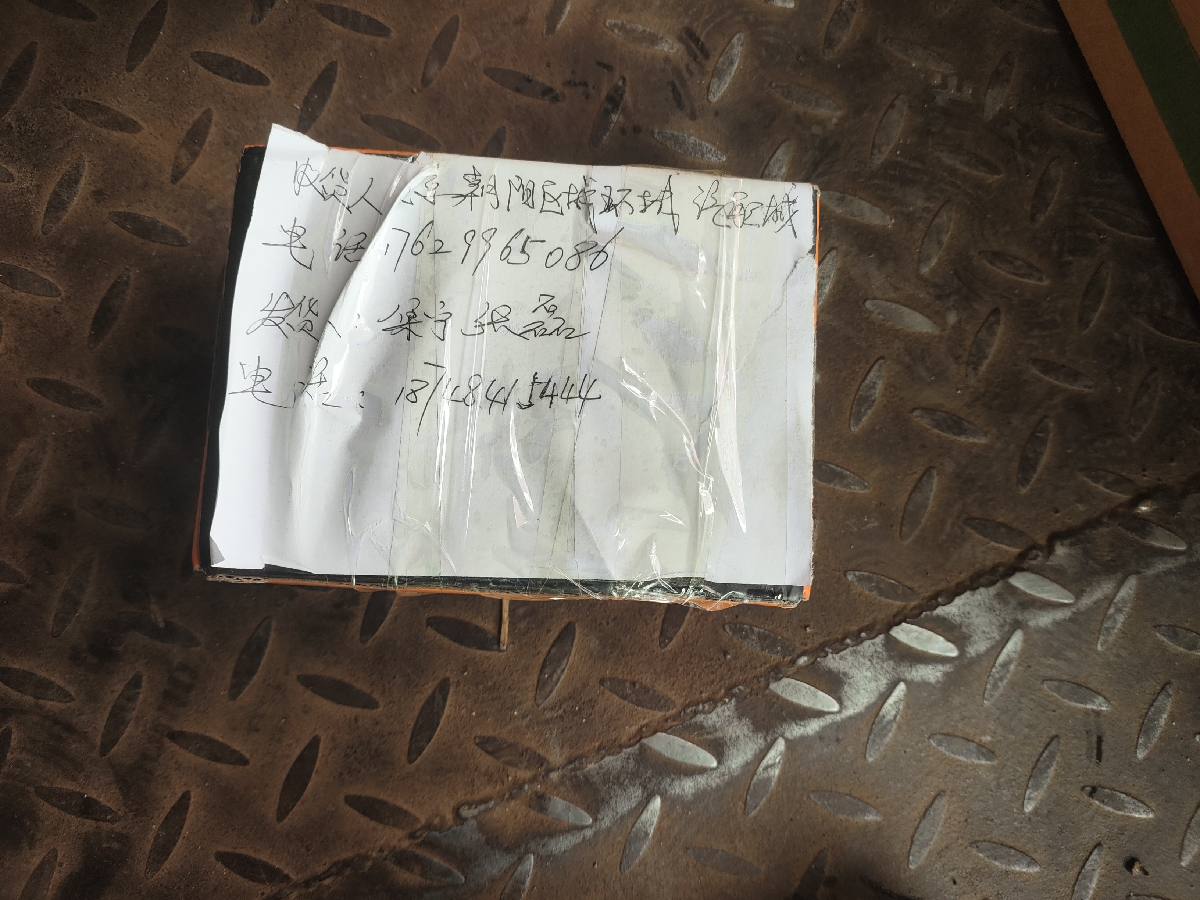 收货人 朝阳区城环城汽配城
电话 17629965086
发货人: 张磊
电话: 18748415444